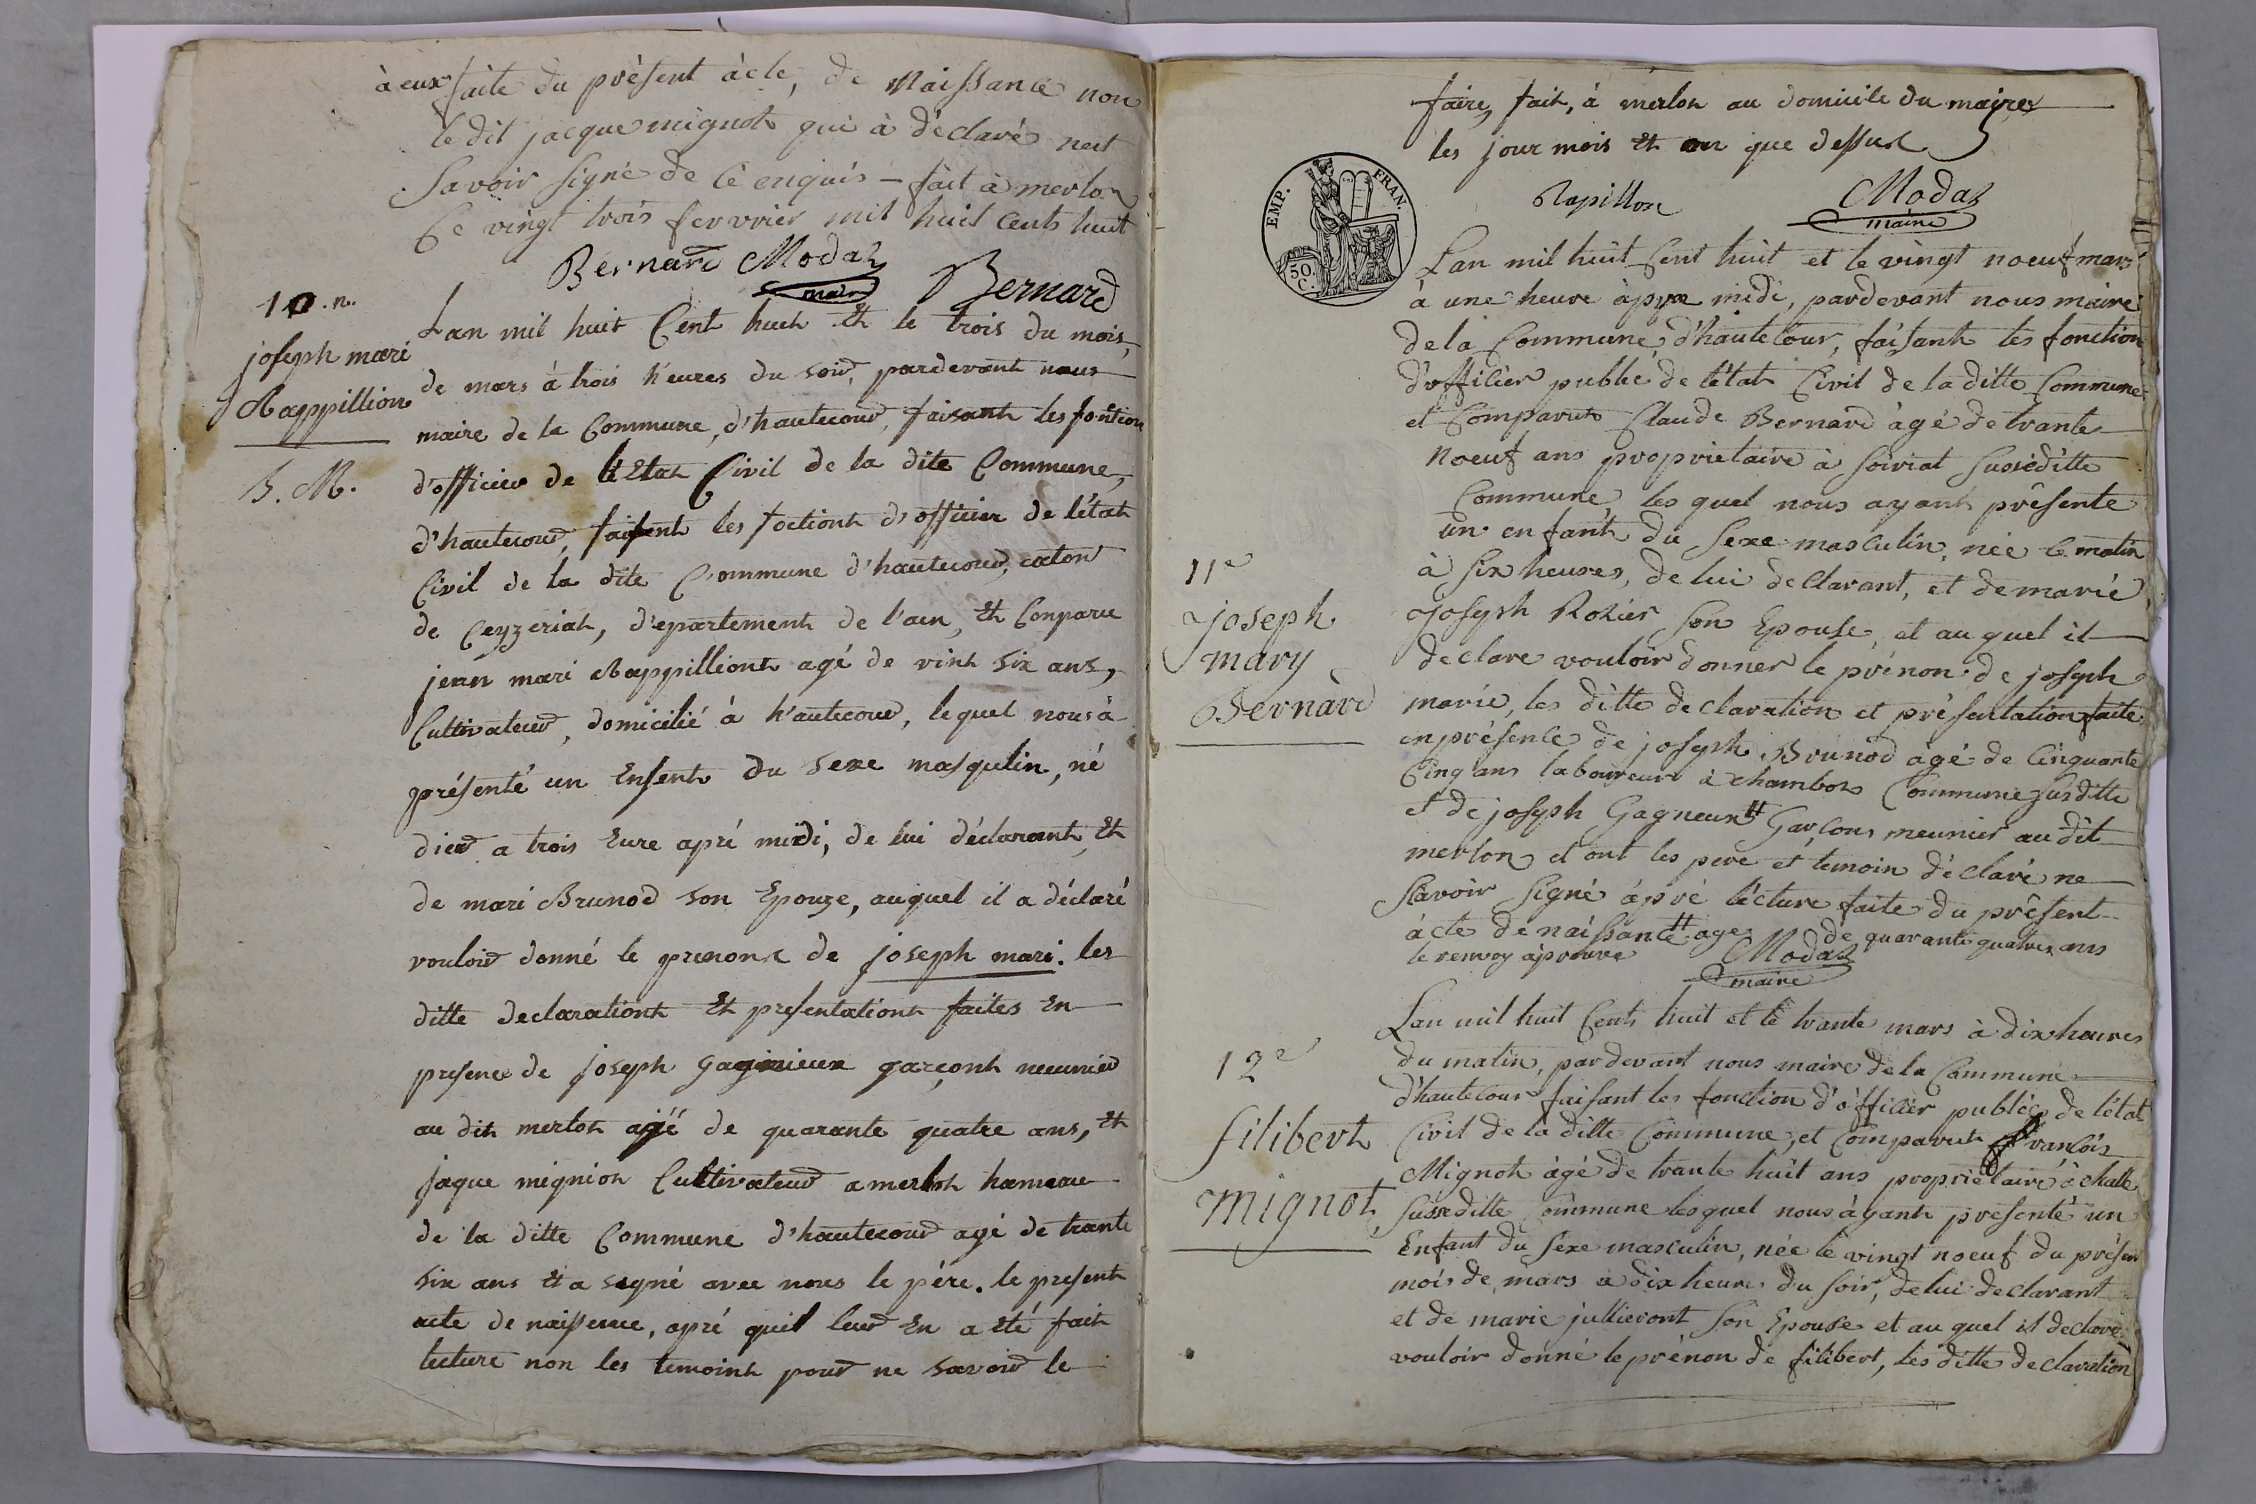 à eux faite du présent àcte, de Naissance non
le dit jacque mignot qui à déclaré neut
Savoir signé de cé enquis – fait à merlon
Ce vingt trois fevvrier mil huit Cents huit
Bernard Modaz maire Bernard
10.n..
joseph mari
Rappillion
B. M.
Lan mil huit Cent huit Et le trois du mois,
de mars à trois h'eures du soir, pardevant nous
maire de la Commune, d'hautecour, faisant les fontion
d'officier de l'Etat Civil de la dite Commune,
d'hautecour, faisent les foctiont d'officier de l'état
Civil de la dite Commune d'hautecour, caton
de Ceyzeriat, d'epartement de l'ain, Et Conparu
jean mari Rappilliont agé de vint six ans,
Cultivateur, domicilié à h'autecour, lequel nous à
présenté un Enfent du sexe masqulin, né
dier a trois Eure apré midi, de lui déclarant, Et
de mari Brunod son Epouze, auquel il a déclaré
vouloir donné le prenont de joseph mari. les
ditte declarationt Et presentationt faites En
presence de joseph gagnieux garçont meunier
au dit merlot agéé de quarante quatre ans, Et
jaque mignion Cultivateur a merlot hameau
de la ditte Commune d'hautecour agé de trante
six ans Et a signé avec nous le pére. le present
acte de naissence, apré quil leur En a été fait
lecture non les temoint pour ne savoir le
faire, fait, à merlon au domicile du maire
les jour mois Et an que dessus
EMP. FRAN.
50. C.
Rapillon Modaz
maire
Lan mil huit Cent huit et le vingt noeuf mars
à une heure àpre midi, pardevant nous maire
de la Commune d'hautecour, faisant les fonction
d'officier publié de l'état Civil de la ditte Commune
et Comparut Claude Bernard àgé de trante
noeuf ans propriétaire à Soiriat Sussèditte
Commune, les quel nous ayant présenté
un enfant du sexe masculin, née Ce matin
à six heures, de lui declarant, et de marie
Joseph Rozier son Epouse, et au quel il
declare vouloir donner le prénon de joseph
marie, les ditte declaration et présentation faite
en présence de joseph Brunod àgé de Cinquante
Cinq ans laboureur à chambod Commune susditte
et de joseph Gagneux †† Garçons meunier au dit
merlon et ont les pere et temoin déclaré ne
Savoir Signé àpré lécture faite du présent
àcte de naissance †† age de quarante quatres ans
le renvoy àprouvé Modaz
maire
11e
joseph
mary
Bernard
Lan mil huit Cents huit et le trante mars à dix heures
du matin, pardevant nous maire de la Commune
d'hautecour faisant les fonction d'officier publéc de l'état
Civil de la ditte Commune, et Comparut francois
Mignot àgé de trante huit ans propriétaire à challe
Sussditte Commune lesquel nous àyant présenté un
Enfant du Sexe masculin, née le vingt noeuf du présent
mois de mars à dix heures du soir, de lui declarant
et de marie jullieront son Epouse et au quel il declare
vouloir donné le prénon de filibert, les ditte declaration
12e
filibert
Mignot